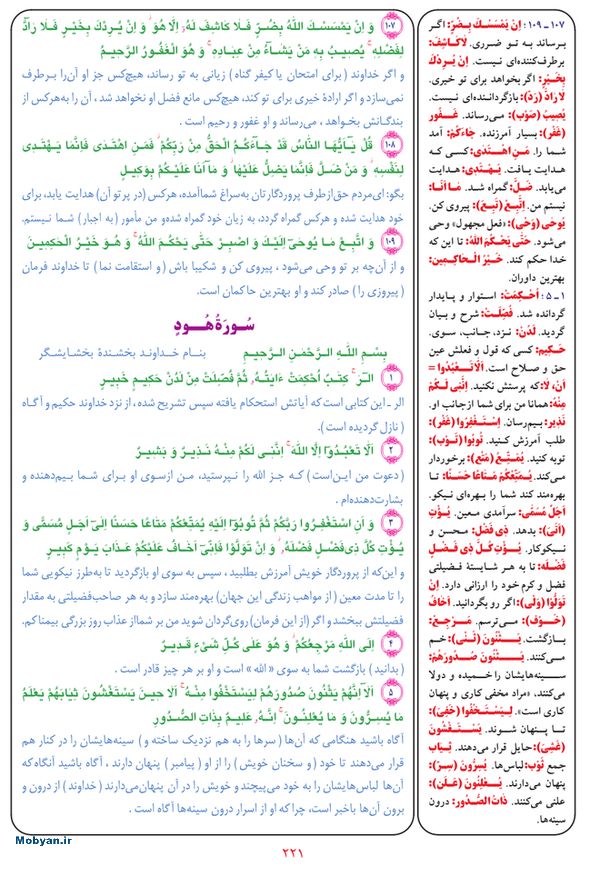 ۱۰۷ وَ اِنْ یَمْسَسْكَ اللّهُ بِضُرٍّ فَلا كاشِفَ لَهُ اِلاّ هُوَ وَ اِنْ یُرِدْكَ بِخَیْرٍ فَلا رآدَّ
لِفَضْلِهِ یُصیبُ بِهِ مَنْ یَشآءُ مِنْ عِبادِهِ وَ هُوَ الْغَفُورُ الرَّحیمُ
و اگر خداوند (برای امتحان یا کیفر گناه) زیانی به تو رساند، هیچ‌کس جز او آن‌را برطرف
نمی‌سازد و اگر ارادهٔ خیری برای تو کند، هیچ‌کس مانع فضل او نخواهد شد، آن را به‌هرکس از
بندگانش بخواهد، می‌رساند و او غفور و رحیم است.
۱۰۸ قُلْ یآ اَیُّهَا النّاسُ قَدْ جآءَكُمُ الْحَقُّ مِنْ رَبِّكُمْ فَمَنِ اهْتَدی فَاِنَّما یَهْتَدی
لِنَفْسِهِ وَ مَنْ ضَلَّ فَاِنَّما یَضِلُّ عَلَیْها وَ ما اَنَا عَلَیْكُمْ بِوَكیلٍ
بگو: ای‌مردم حق‌ازطرف پروردگارتان به‌سراغ شماآمده، هرکس (در پرتو آن) هدایت یابد، برای
خود هدایت شده و هرکس گمراه گردد، به زیان خود گمراه شده‌و من مأمور (به اجبار) شما نیستم.
۱۰۹ وَ اتَّبِعْ ما یُوحی اِلَیْكَ وَ اصْبِرْ حَتّی یَحْكُمَ اللّهُ وَ هُوَ خَیْرُ الْحكِمینَ
و از آن‌چه بر تو وحی می‌شود، پیروی کن و شکیبا باش (و استقامت نما) تا خداوند فرمان
(پیروزی را) صادر کند و او بهترین حاکمان است.
سُورَةُ هُودٍ
بِسْمِ اللهِ الرَّحْمنِ الرَّحیمِ بنام خداوند بخشندهٔ بخشایشگر
۱ الر كِتبٌ اُحْكِمَتْ ءَایتُهُ ثُمَّ فُصِّلَتْ مِنْ لَدُنْ حَكیمٍ خَبیرٍ
الر ـ این کتابی است که آیاتش استحکام یافته سپس تشریح شده، از نزد خداوند حکیم و آگاه
(نازل گردیده است).
۲ اَلاّ تَعْبُدُوآا اِلاَّ اللهَ اِنَّنی لَكُمْ مِنْهُ نَذیرٌ وَ بَشیرٌ
(دعوت من این‌است) که جز الله را نپرستید، من ازسوی او برای شما بیم‌دهنده و
بشارت‌دهنده‌ام.
۳ وَ اَنِ اسْتَغْفِرُوا رَبَّكُمْ ثُمَّ تُوبُوآا اِلَیْهِ یُمَتِّعْكُمْ مَتاعًا حَسَنًا اِلی اَجَلٍ مُسَمًّی وَ
یُؤْتِ كُلَّ ذی فَضْلٍ فَضْلَهُ وَ اِنْ تَوَلَّوْا فَاِنّی اَخافُ عَلَیْكُمْ عَذابَ یَوْمٍ كَبیرٍ
و این‌که از پروردگار خویش آمرزش بطلبید، سپس به سوی او بازگردید تا به‌طرز نیکویی شما
را تا مدت معین (از مواهب زندگی این جهان) بهره‌مند سازد و به هر صاحب‌فضیلتی به مقدار
فضیلتش ببخشد و اگر (از این فرمان) روی‌گردان شوید من بر شمااز عذاب روز بزرگی بیمناکم.
۴ اِلَی اللهِ مَرْجِعُكُمْ وَ هُوَ عَلی كُلِّ شَیْءٍ قَدیرٌ
(بدانید) بازگشت شما به سوی «الله» است و او بر هر چیز قادر است.
۵ اَلا اِنَّهُمْ یَثْنُونَ صُدُورَهُمْ لِیَسْتَخْفُوا مِنْهُ اَلا حینَ یَسْتَغْشُونَ ثِیابَهُمْ یَعْلَمُ
ما یُسِرُّونَ وَ ما یُعْلِنُونَ اِنَّهُ عَلیمٌ بِذاتِ الصُّدُورِ
آگاه باشید هنگامی که آن‌ها (سرها را به هم نزدیک ساخته و) سینه‌هایشان را در کنار هم
قرار می‌دهند تا خود (و سخنان خویش) را از او (پیامبر) پنهان دارند، آگاه باشید آنگاه که
آن‌ها لباس‌هایشان را به خود می‌پیچند و خویش را در آن پنهان‌می‌دارند (خداوند) از درون و
برون آن‌ها باخبر است، چرا که او از اسرار درون سینه‌ها آگاه است.
۱۰۷ ـ ۱۰۹: اِنْ یَمْسَسْكَ بِضُرٍّ: اگر
برساند به تو ضرری. لاکاشِفَ:
برطرف‌کننده‌ای نیست. اِنْ یُرِدْكَ
بِخَیْرٍ: اگر بخواهد برای تو خیری.
لا رادَّ (رَدَّ): بازگرداننده‌ای نیست.
یُصیبُ (صَوَبَ): می‌رساند. غَفُور
(غَفَرَ): بسیار آمرزنده. جاءَكُمْ: آمد
شما را. مَنِ اهْتَدی: کسی که
هدایت یافت. یَهْتَدی: هدایت
می‌یابد. ضَلَّ: گمراه شد. ما اَنَا:
نیستم من. اِتَّبِعْ (تَبِعَ): پیروی کن.
یُوحی (وَحَی): «فعل مجهول» وحی
می‌شود. حَتّی یَحْكُمَ اللهُ: تا این که
خدا حکم کند. خَیْرُ الْحاكِمینَ:
بهترین داوران.
۱ ـ ۵: اُحْكِمَتْ: استوار و پایدار
گردانده شد. فُصِّلَتْ: شرح و بیان
گردید. لَدُنْ: نزد، جانب، سوی.
حَكیم: کسی که قول و فعلش عین
حق و صلاح است. اَلاّ تَعْبُدُوا =
اَنْ، لا: که پرستش نکنید. اِنَّنی لَكُمْ
مِنْهُ: همانا من برای شما ازجانب او.
نَذیر: بیم‌رسان. اِسْتَغْفِرُوا (غَفَرَ):
طلب آمرزش کنید. تُوبُوا (تَوَبَ):
توبه کنید. یُمَتِّعُ (مَتَعَ): برخوردار
می‌کند. یُمَتِّعْكُمْ مَتاعًا حَسَنًا: تا
بهره‌مند کند شما را بهره‌ای نیکو.
اَجَلٍ مُسَمًّی: سرآمدی معین. یُؤْتِ
(اَتَیَ): بدهد. ذی فَضْلٍ: محسن و
نیکوکار. یُؤْتِ كُلَّ ذی فَضْلٍ
فَضْلَهُ: تا به هر شایستهٔ فضیلتی
فضل و کرم خود را ارزانی دارد. اِنْ
تَوَلَّوْا (وَلَیَ): اگر رو بگردانید. اَخافُ
(خَوَفَ): می‌ترسم. مَرْجِعُ:
بازگشت. یَثْنُونَ (ثَنَیَ): خم
می‌کنند. یَثْنُونَ صُدُورَهُمْ:
سینه‌هایشان را خمیده و دولا
می‌کنند، «مراد مخفی کاری و پنهان
کاری است». لِیَسْتَخْفُوا (خَفِیَ):
تا پنهان شوند. یَسْتَغْشُونَ
(غَشِیَ): حایل قرار می‌دهند. ثِیاب
جمع ثَوْب: لباس‌ها. یُسِرُّونَ (سِرّ):
پنهان می‌دارند. یُعْلِنُونَ (عَلَنَ):
علنی می‌کنند. ذاتِ الصُّدُور: درون
سینه‌ها.
Mobyan.ir
۲۲۱